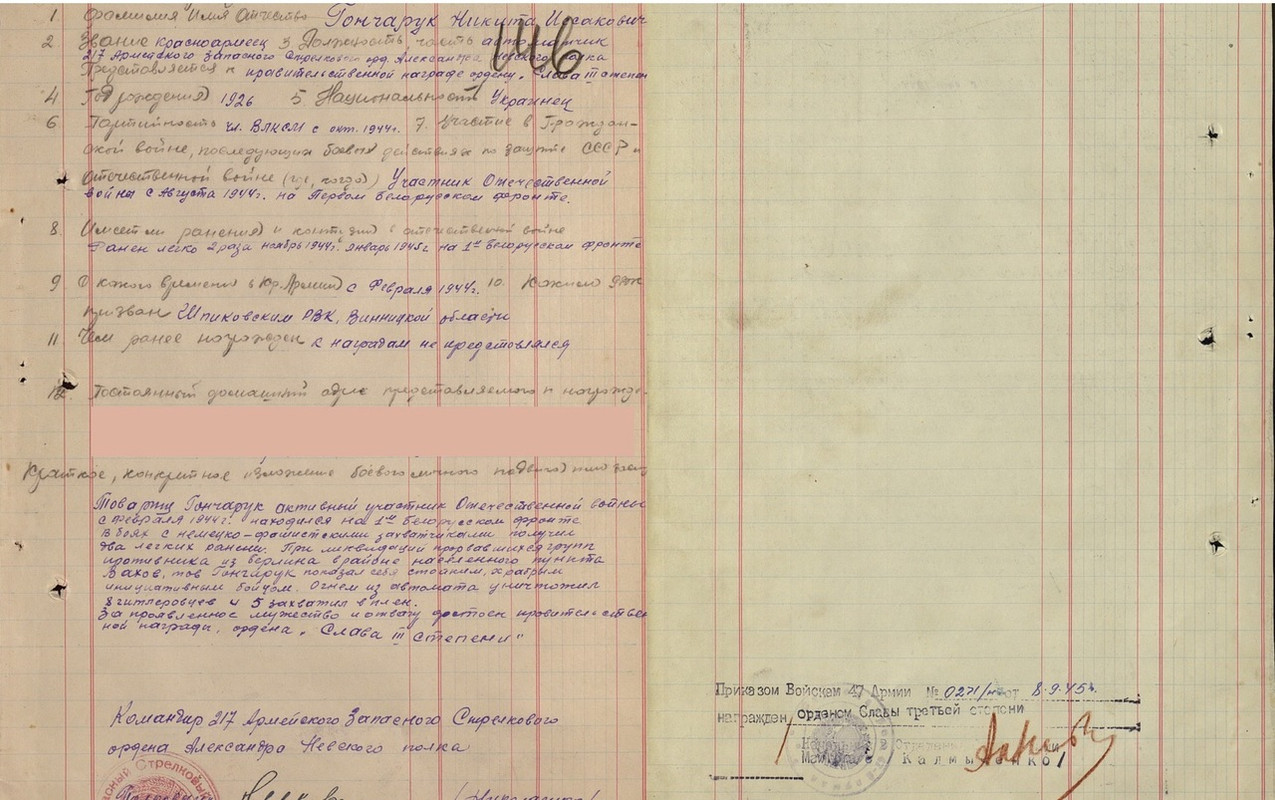 146
1. Фамилия Имя Отчество Гончарук Никита Исакович
2 Звание красноармеец 3 Должность, часть автоматчик
217 Армейского Запасного Стрелкового орд. Александра Невского полка
Представляется к правительственной награде ордену „Слава III степени
4 Год рождения 1926 5 Национальность Украинец
6 Партийность чл. ВЛКСМ с окт. 1944г. 7. Участие в Граждан-
ской войне, последующих боевых действиях по защите СССР и
отечественной войне (где, когда) Участник Отечественной
войны с Августа 1944г. на Первом Белорусском фронте.
8. Имеет ли ранения и контузии в отечественной войне
Ранен легко 2 раза ноябрь 1944г. январь 1945г на 1ом Белорусском фронте
9 С какого времени в Кр. Армии с Февраля 1944г. 10. Каким
призван Шпиковским РВК, Винницкой области
11 Чем ранее награжден к наградам не предстовлялся
12. Постоянный домашний адрес представляемого к награжд-
Краткое, конкретное изложение боевого личного подвига
Товарищ Гончарук активный участник Отечественной войны
с Февраля 1944г. находился на 1ом Белорусском фронте
В боях с немецко-фашистскими захватчиками получил
два легких рании. При ликвидации прорвавшихся групп
противника из Берлина в районе населенного пункта
Вахов, тов Гончарук показал себя стойким, храбрым
инициативным бойцом. Огнем из автомата уничтожил
8 гитлеровцев и 5 захватил в плен.
За проявленное мужество и отвагу достоен правительствен
ной награды, ордена „Слава III степени"
Командир 217 Армейского Запасного Стрелкового
ордена Александра Невского полка
Приказом Войскам 47 Армии № 0271/н от 8.9.45г.
награжден орденом Славы третьей степени
Калмыченко